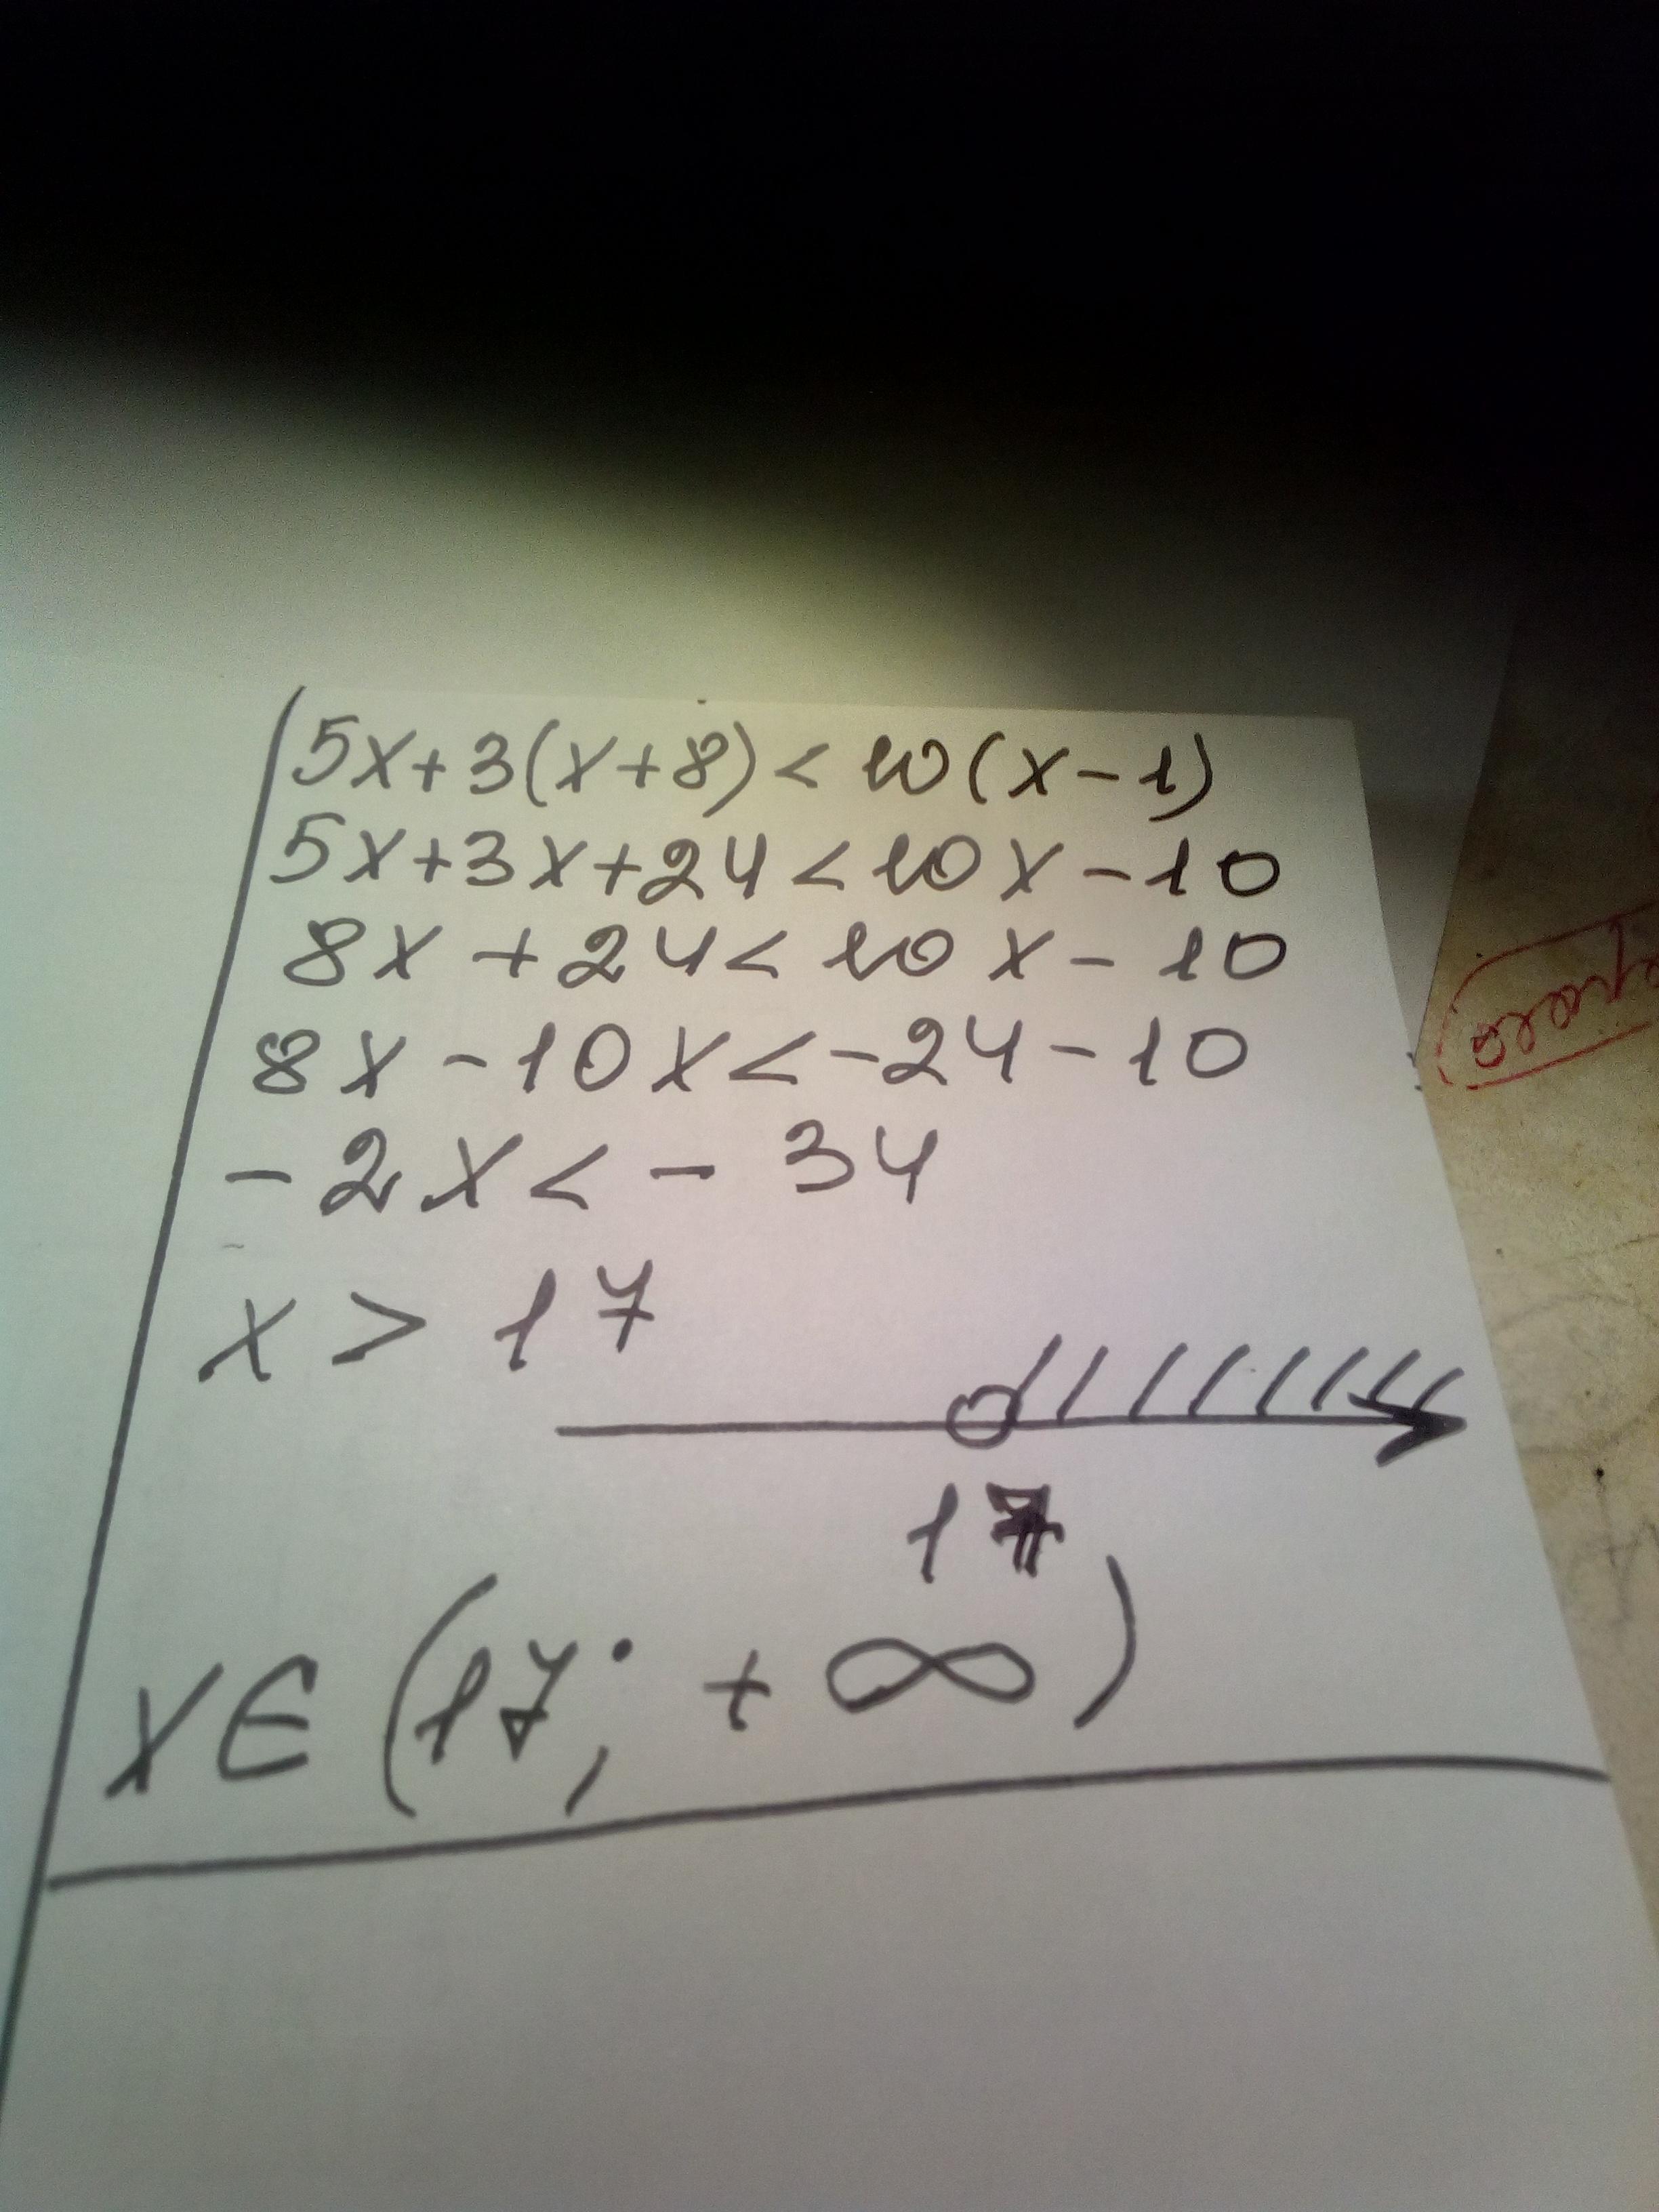 5x+3(x+8)<10(x-1)
5x+3x+24<10x-10
8x+24<10x-10
8x-10x<-24-10
-2x<-34
x>17
17
x∈(17;+∞)